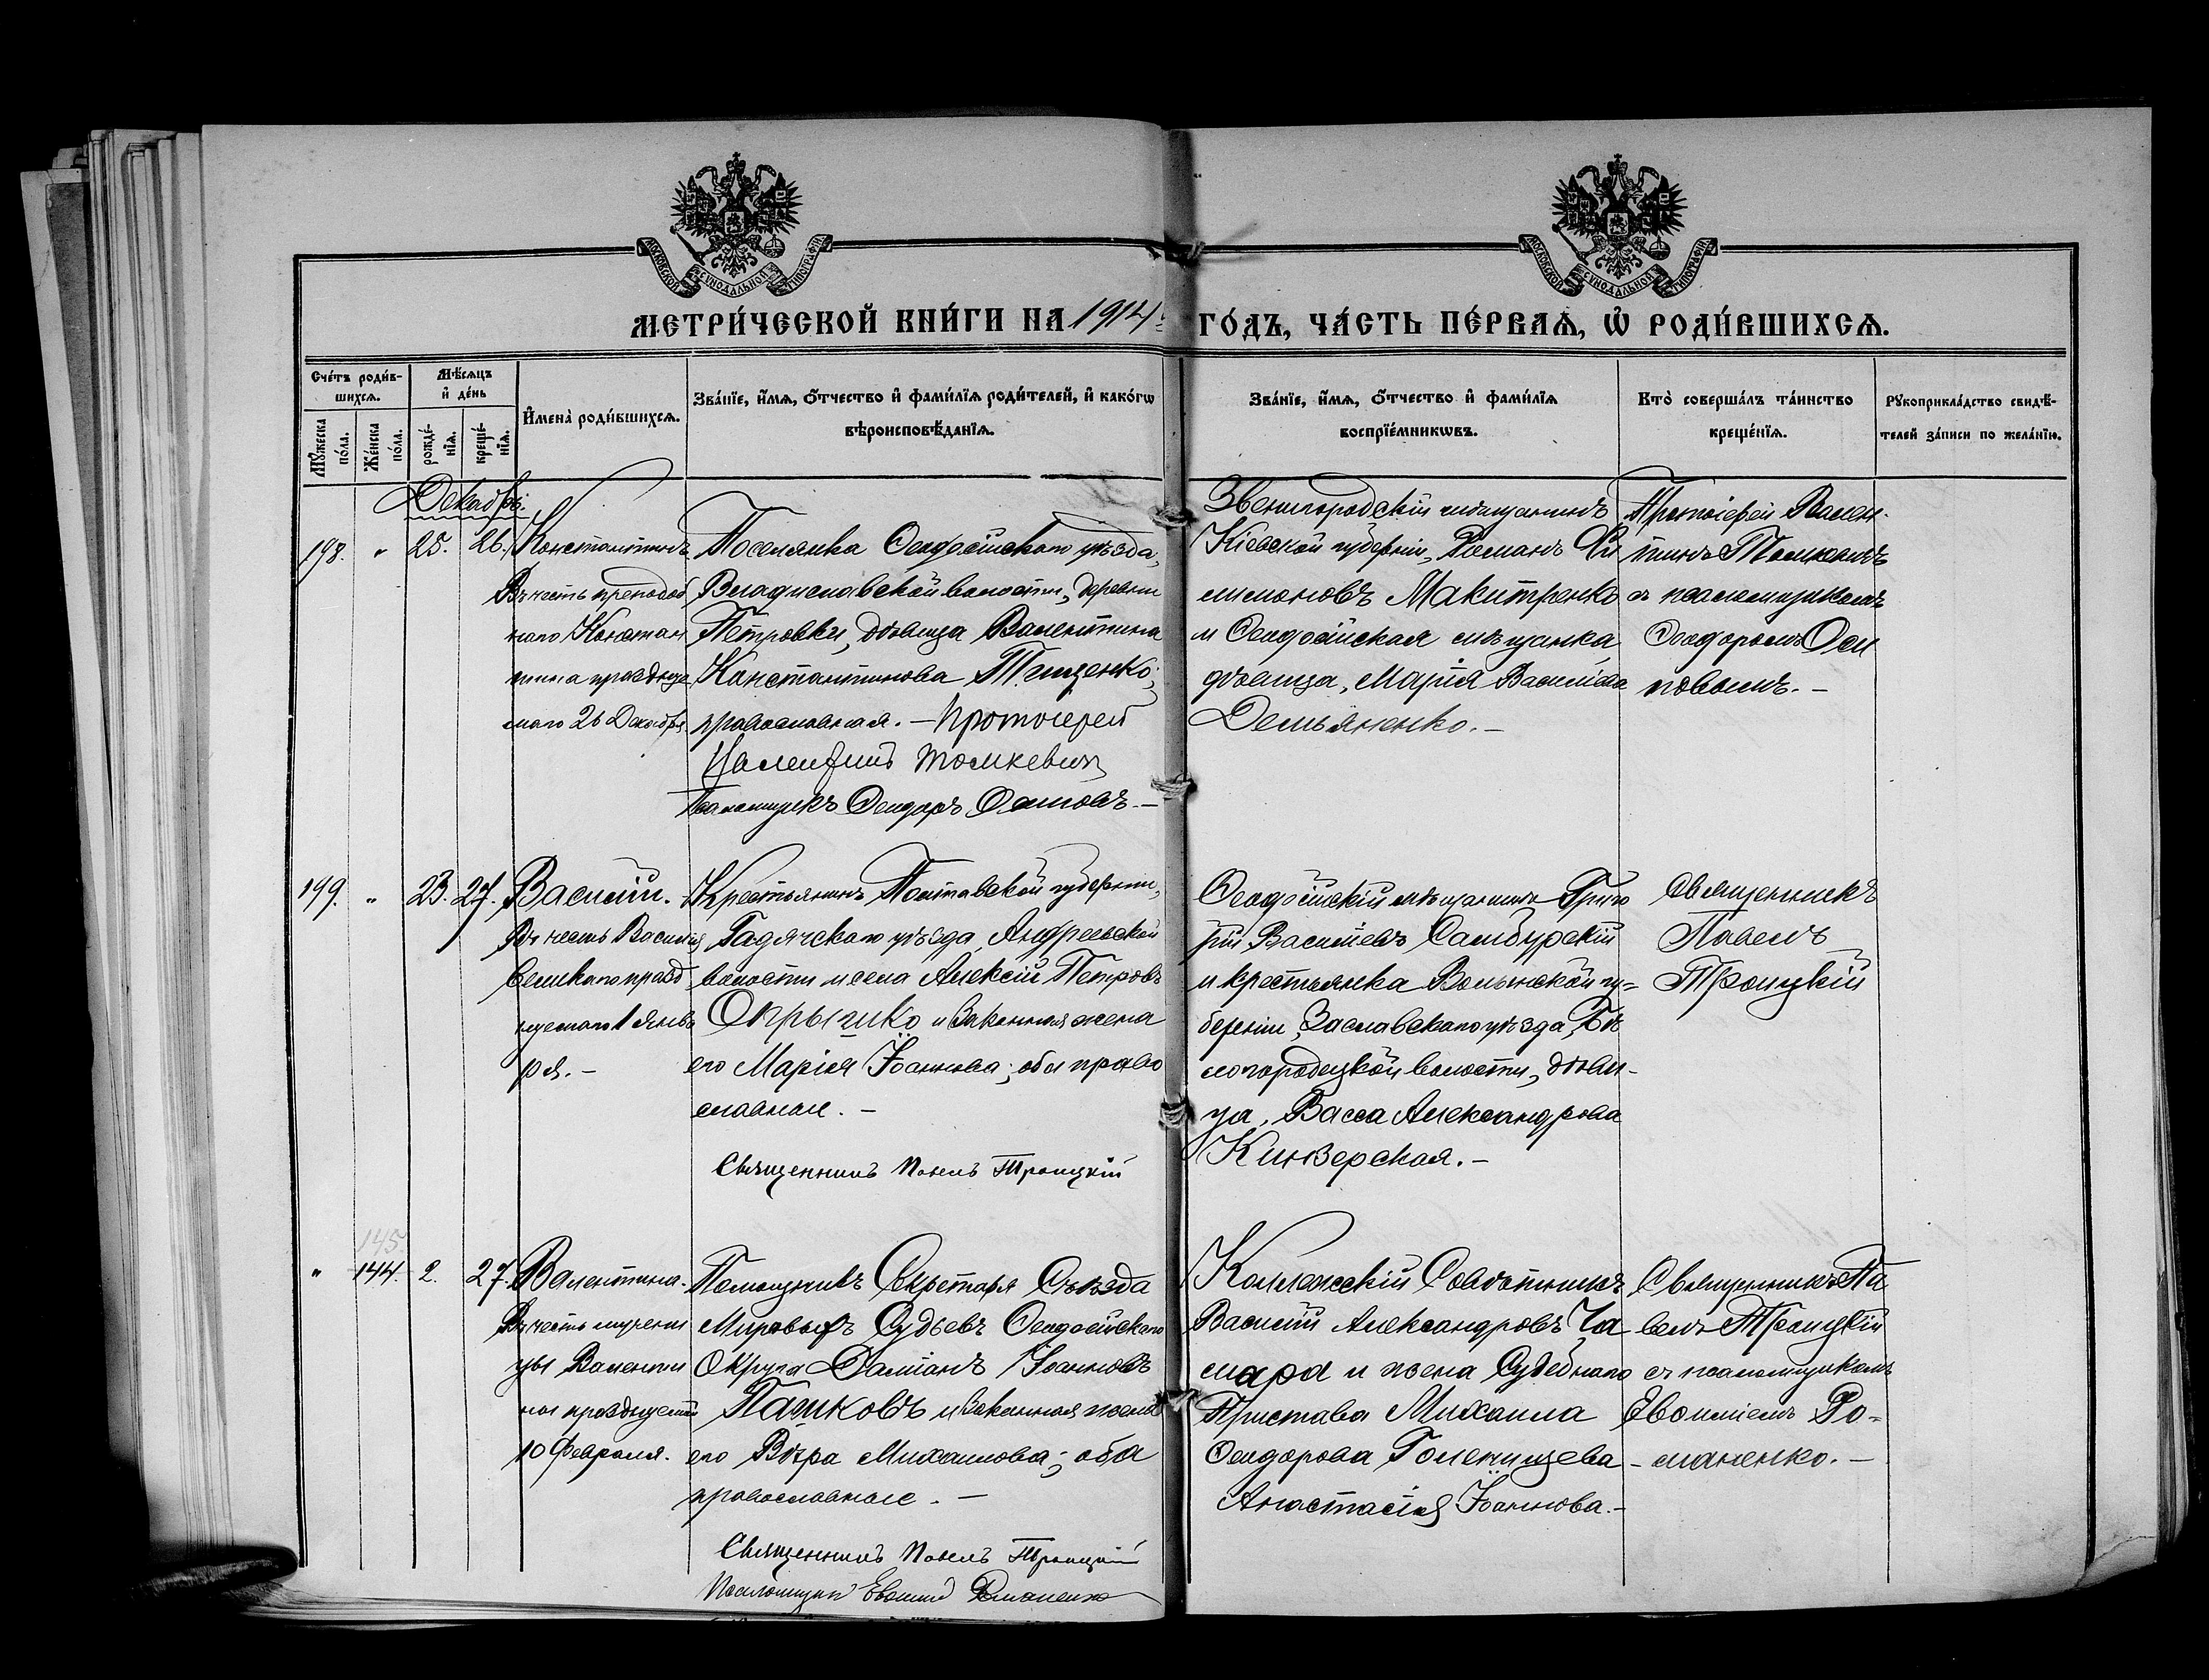 МОСКОВСКОЙ СѴНОДАЛЬНОЙ ТИПОГРАФІИ
МОСКОВСКОЙ СѴНОДАЛЬНОЙ ТИПОГРАФІИ
МЕТРИ́ЧЕСКОЙ КНИ́ГИ НА 1914 ГО́ДЪ, ЧА́СТЬ ПЕ́РВАѦ, Ѽ РОДИ́ВШИХСѦ.
Сче́тъ роди́в-
шихсѧ.
Мꙋжеска по́ла.
Же́нска по́ла.
Мѣ́сѧцъ
и҆ де́нь
рожде́-
нїѧ.
креще́-
нїѧ.
И҆мена̀ роди́вшихсѧ.
Зва́нїе, и҆́мѧ, ѻ҆́тчество и҆ фами́лїѧ роди́телей, и҆ како́гѡ
вѣроисповѣ́данїѧ.
Зва́нїе, и҆́мѧ, ѻ҆́тчество и҆ фами́лїѧ
воспрїе́мникѡвъ.
Кто̀ соверша́лъ та́инство
креще́нїѧ.
Рꙋкоприкла́дство свидѣ́-
телей за́писи по жела́нїю.
Декабрь.
198. " 25. 26. Константинъ
Въ честь преподоб
наго Констан
тина празднуе
маго 26 Декабря.
Поселянка Ѳеодосійскаго уѣзда,
Владиславской волости, деревни
Петровки, дѣвица Валентина
Константинова Тищенко;
православная. – Протоіерей
Валентинъ Томкевичъ
Псаломщикъ Ѳеодоръ Осиповъ. –
Звенигородскій мѣщанинъ
Кіевской губерніи, Романъ Фи
лимоновъ Макитренко
и Ѳеодосійская мѣщанка,
дѣвица, Марія Васильева
Демьяненко. –
Протоіерей Вален-
тинъ Томкевичъ
съ псаломщикомъ
Ѳеодоромъ Оси
повымъ. –
199. " 23. 27. Василій.
Въ честь Василія
Великаго празд
нуемаго 1 Янва
ря. –
Крестьянинъ Полтавской губерніи,
Гадячскаго уѣзда, Андреевской
волости и села Алексій Петровъ
и законная жена
его Марія Іоаннова; оба право
славные. –
Священникъ Павелъ Троицкій
Ѳеодосійскій мѣщанинъ Григо
рій Василіевъ Самбурскій
и крестьянка Волынской гу=
берніи, Заславскаго уѣзда, Бѣ
логородецкой волости, дѣви-
ца, Васса Александрова
Кинзерская. –
Священникъ
Павелъ
Троицкій
145.
" 144. 2. 27. Валентина.
Въ честь мучени
цы Валенти
ны празднуемой
10 Февраля.
Помощникъ Секретаря Съѣзда
Мировыхъ Судьевъ Ѳеодосійскаго
Округа Даміанъ Іоанновъ
Пашковъ и законная жена
его Вѣра Михаилова; оба
православные. –
Священникъ Павелъ Троицкій
Псаломщикъ Евѳимій Романенко
Коллежскій Совѣтникъ
Василій Александровъ Ча
мара и жена Судебнаго
Пристава Михаила
Ѳеодорова Голенищева –
Анастасія Іоаннова. –
Священникъ Па
велъ Троицкій
съ псаломщикомъ
Евѳиміемъ Ро=
маненко. –